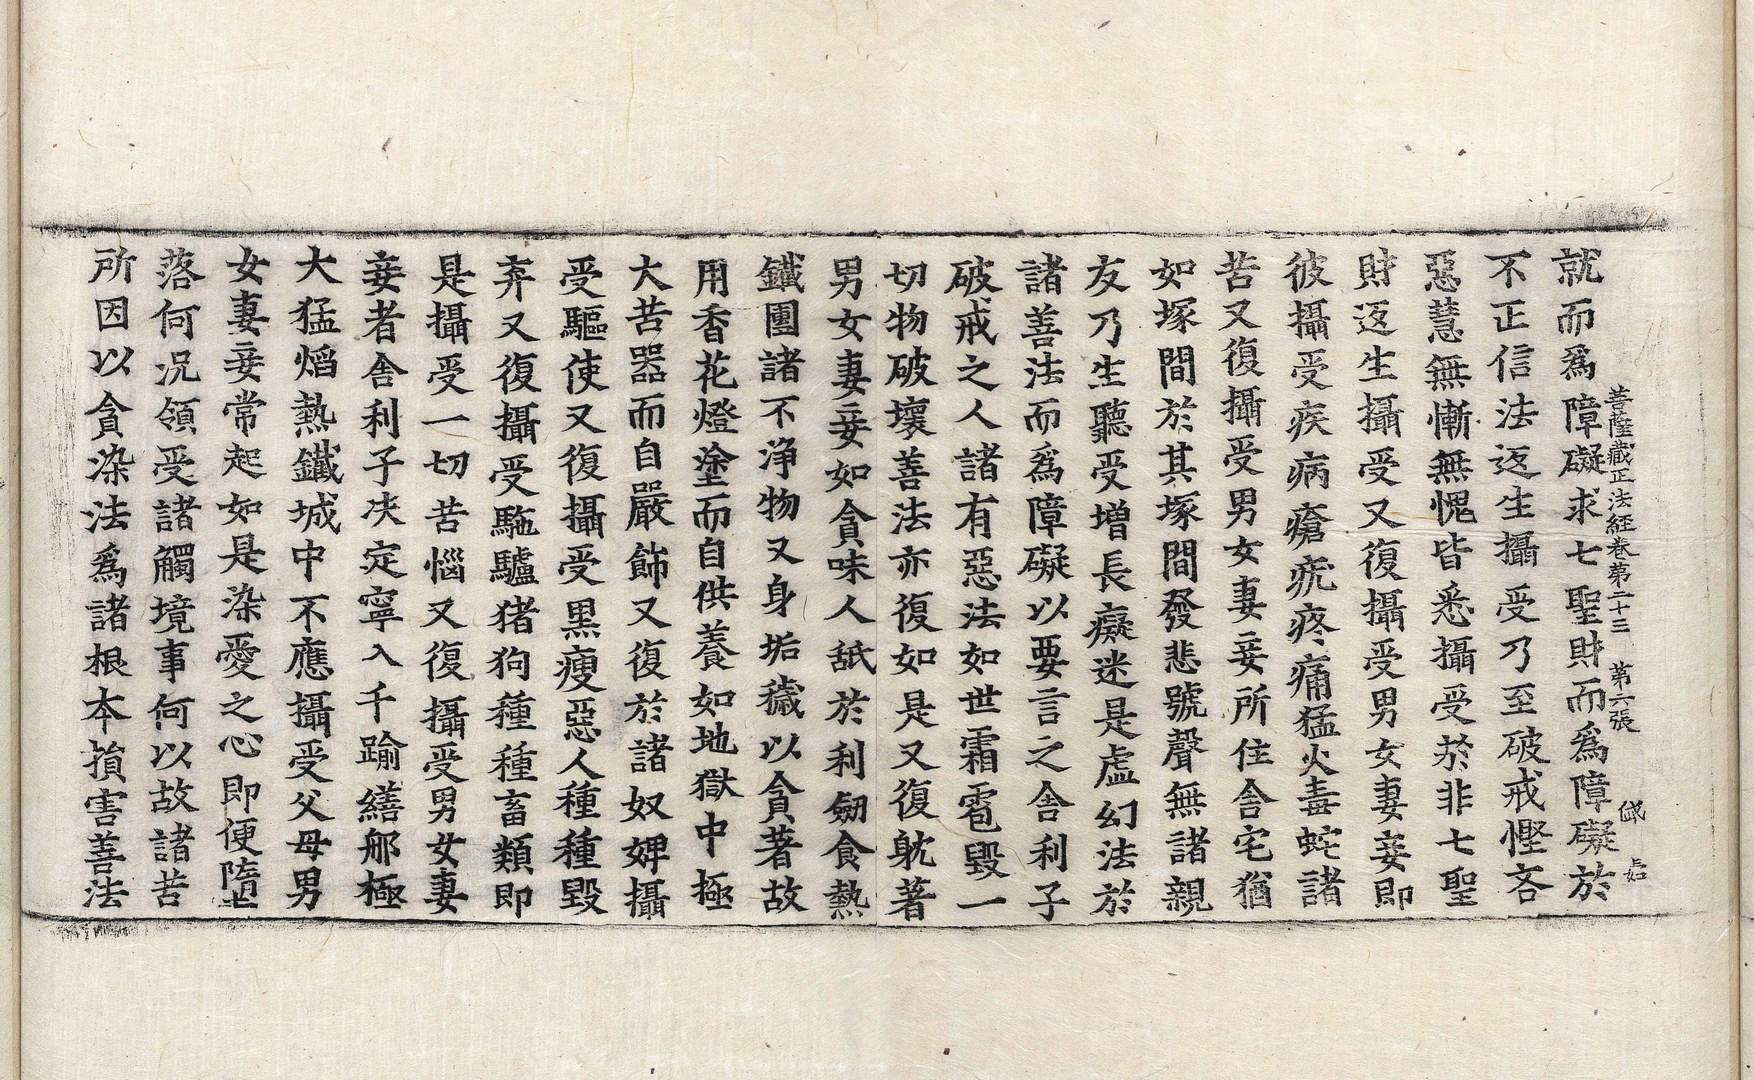 菩薩藏正法經卷第二十三 第六張
就而爲障礙求七聖財而爲障礙於
不正信法返生攝受乃至破戒慳吝
惡慧無慚無愧皆悉攝受於非七聖
財返生攝受又復攝受男女妻妾即
彼攝受疾病瘡疣疼痛猛火毒蛇諸
苦又復攝受男女妻妾所住舍宅猶
如塚間於其塚間發悲號聲無諸親
友乃生聽受增長癡迷是虛幻法於
諸善法而爲障礙以要言之舍利子
破戒之人諸有惡法如世霜雹毀一
切物破壞善法亦復如是又復躭著
男女妻妾如貪味人舐於利劒食熱
鐵團諸不淨物又身垢穢以貪著故
用香花燈塗而自供養如地獄中極
大苦器而自嚴飾又復於諸奴婢攝
受驅使又復攝受黑瘦惡人種種毀
弃又復攝受駞驢猪狗種種畜類即
是攝受一切苦惱又復攝受男女妻
妾者舍利子决定寧入千踰繕那極
大猛熖熱鐵城中不應攝受父母男
女妻妾常起如是染愛之心即便墮
落何況領受諸觸境事何以故諸苦
所因以貪染法爲諸根本損害善法